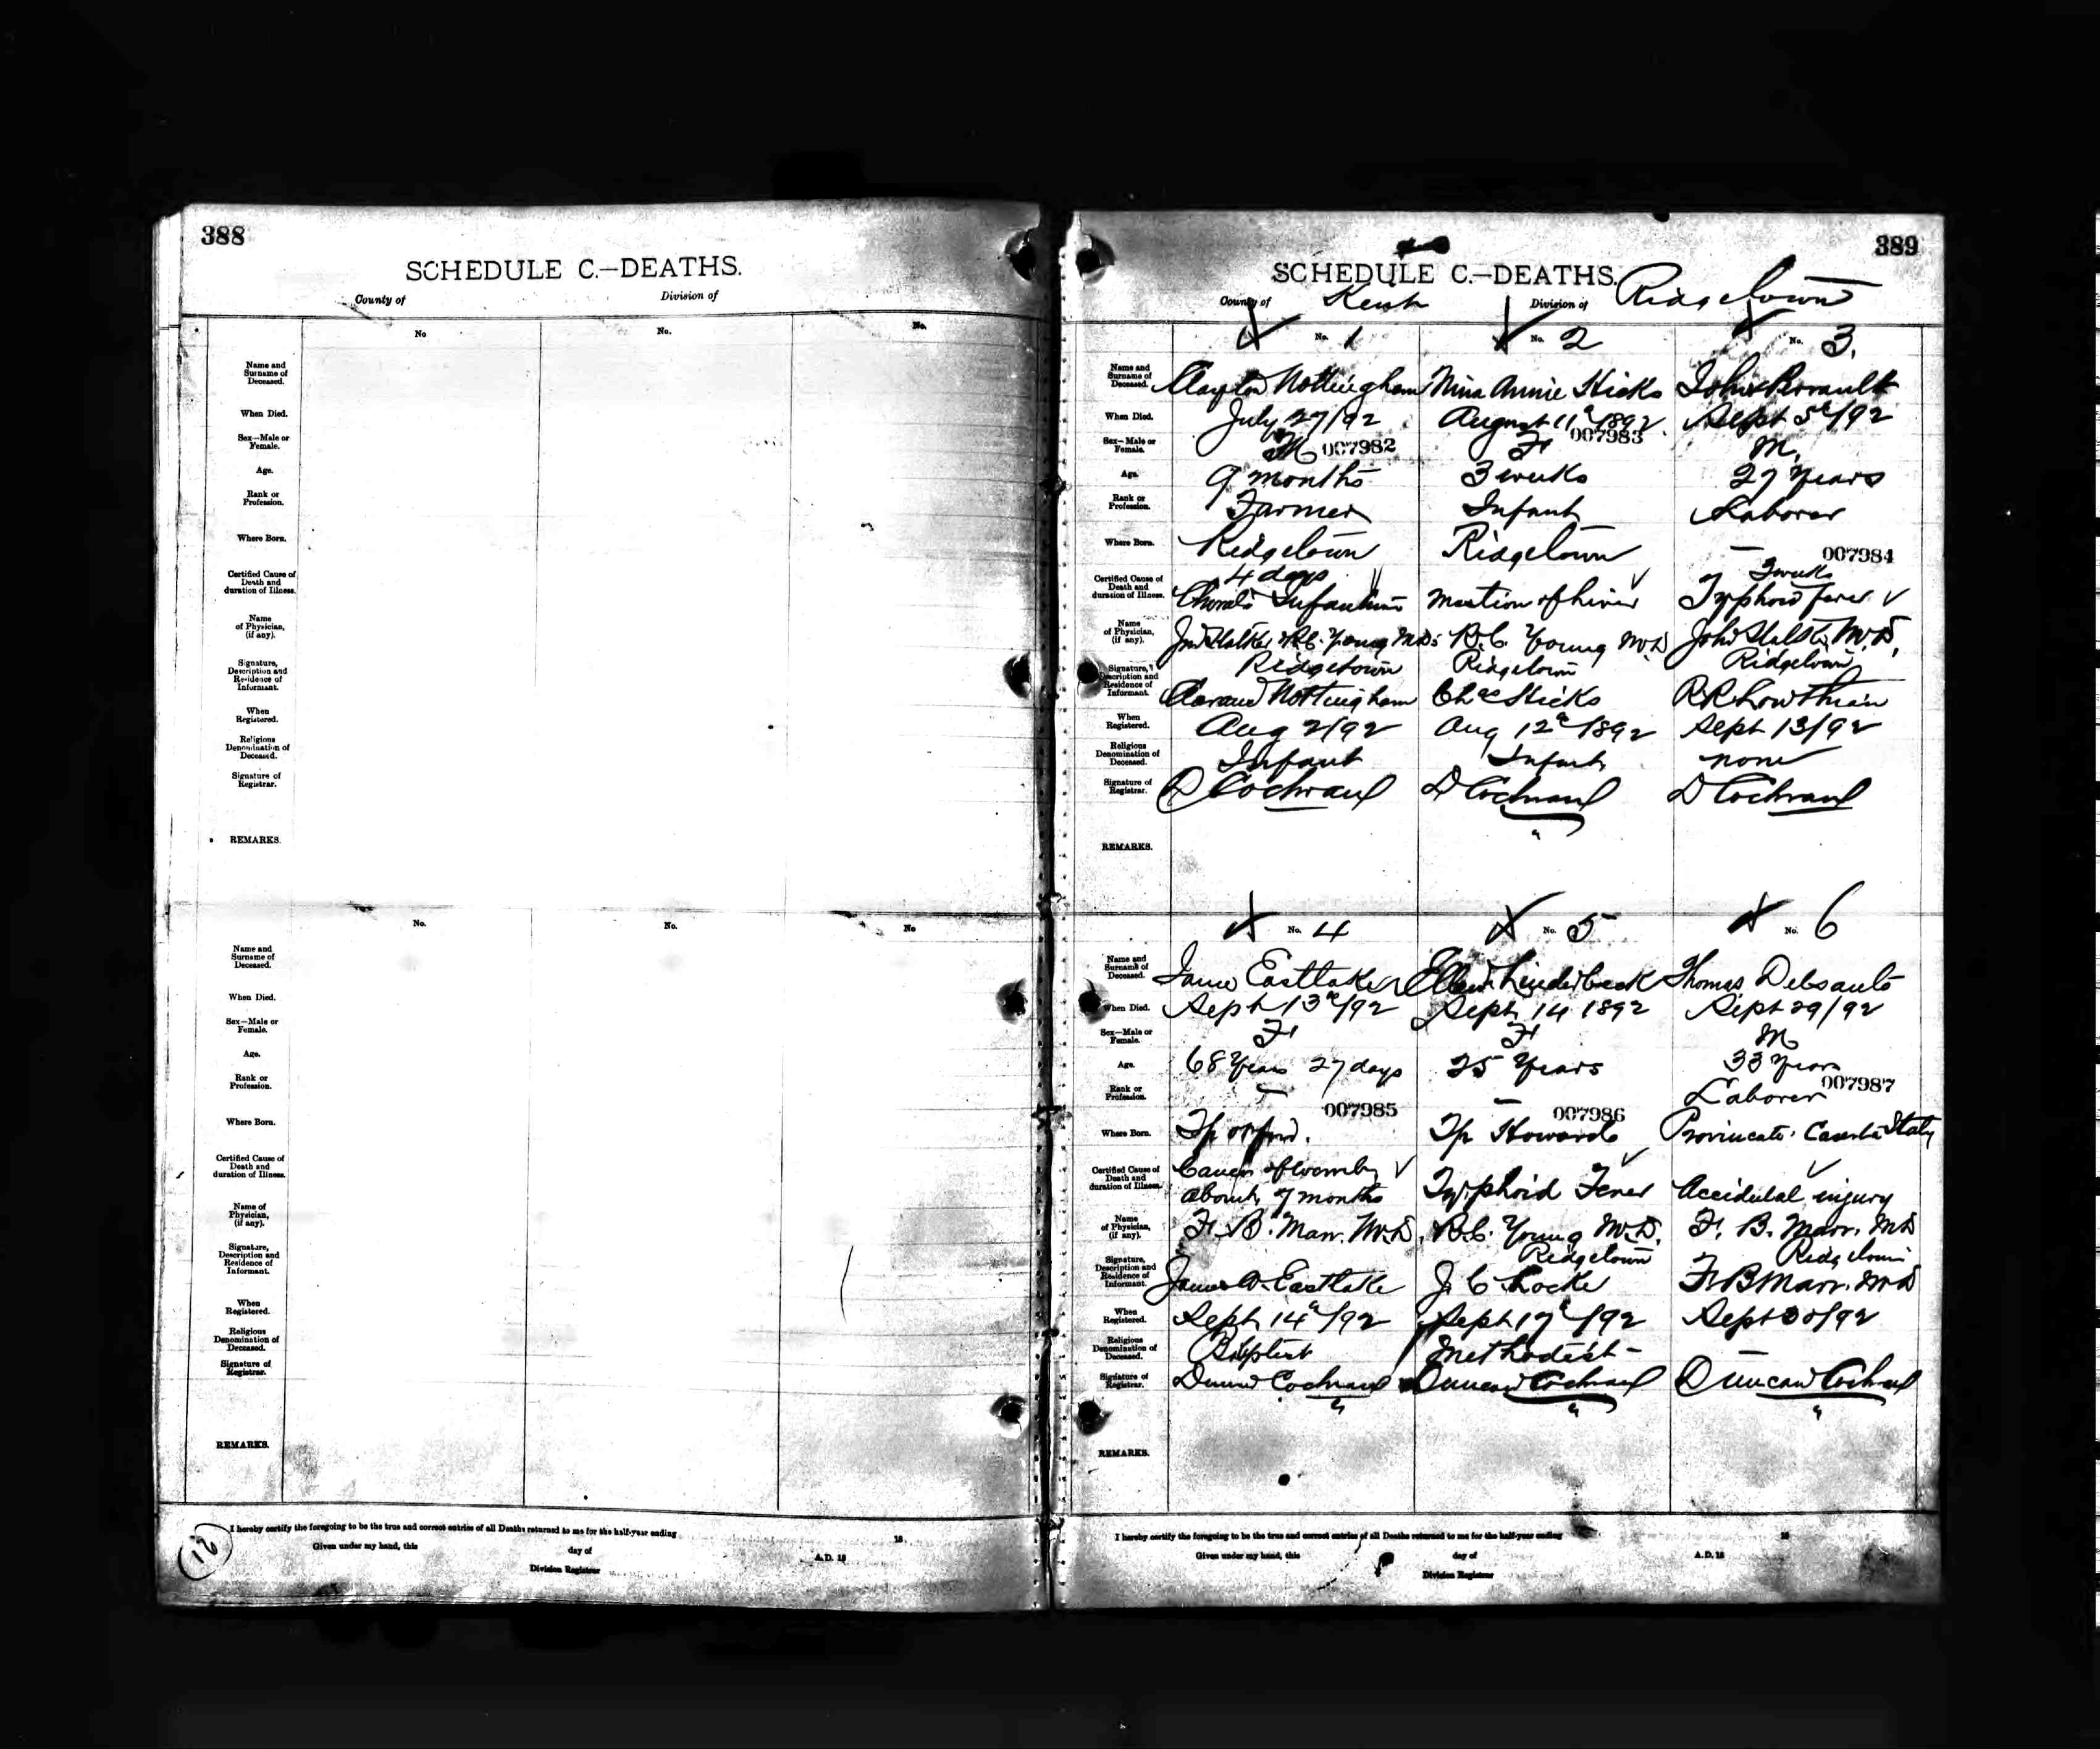 388
SCHEDULE C.—DEATHS.
County of Division of
No No. No.
Name and
Surname of
Deceased.
When Died.
Sex—Male or
Female.
Age.
Rank or
Profession.
Where Born.
Certified Cause of
Death and
duration of Illness.
Name
of Physician,
(if any).
Signature,
Description and
Residence of
Informant.
When
Registered.
Religious
Denomination of
Deceased.
Signature of
Registrar.
REMARKS.
No. No. No
Name and
Surname of
Deceased.
When Died.
Sex—Male or
Female.
Age.
Rank or
Profession.
Where Born.
Certified Cause of
Death and
duration of Illness.
Name of
Physician,
(if any).
Signature,
Description and
Residence of
Informant.
When
Registered.
Religious
Denomination of
Deceased.
Signature of
Registrar.
REMARKS.
I hereby certify the foregoing to be the true and correct entries of all Deaths returned to me for the half-year ending 18
Given under my hand, this day of A.D. 18
Division Registrar
389
SCHEDULE C.—DEATHS.
County of Kent Division of Ridgetown
No. 1 No. 2 No. 3.
Name and
Surname of
Deceased.
Clayton Nottingham Nina Annie Hicks John Perrault
When Died.
July 27/92 August 11th 1892 Sept 5th/92
Sex—Male or
Female.
M 007982 F 007983 M.
Age.
9 months 3 weeks 27 Years
Rank or
Profession.
Farmer Infant Laborer
Where Born.
Ridgetown Ridgetown — 007984
Certified Cause of
Death and
duration of Illness.
4 days 3 weeks
Infantum of Liver Typhoid fever
Name
of Physician,
(if any).
R.C. Young M.D. R.C. Young M.D John M.D,
Ridgetown Ridgetown Ridgetown
Signature,
Description and
Residence of
Informant.
Nottingham Chas Hicks
When
Registered.
Aug 2/92 Aug 12th 1892 Sept 13/92
Religious
Denomination of
Deceased.
Infant Infant none
Signature of
Registrar.
D Cochrane D Cochrane D Cochrane
REMARKS.
No. 4 No. 5 No. 6
Name and
Surname of
Deceased.
Jane Eastlake Ellen Linderbeck Thomas
When Died.
Sept 13th/92 Sept 14 1892 Sept 29/92
Sex—Male or
Female.
F F M
Age.
68 Years 27 days 25 Years 33 Years
Rank or
Profession.
— — Laborer 007987
007985 007986
Where Born.
Tp Orford. Tp Howard Caserta Italy
Certified Cause of
Death and
duration of Illness.
Cancer of womb
about 7 months Typhoid Fever Accidental injury
Name
of Physician,
(if any).
F. B. Marr. M.D. R.C. Young M.D. F. B. Marr. MD
Ridgetown Ridgetown
Signature,
Description and
Residence of
Informant.
James W. Eastlake J. C Locke F B Marr. MD
When
Registered.
Sept 14th/92 Sept 17th/92 Sept 30/92
Religious
Denomination of
Deceased.
Baptist Methodist —
Signature of
Registrar.
Duncan Cochrane Duncan Cochrane Duncan Cochrane
REMARKS.
I hereby certify the foregoing to be the true and correct entries of all Deaths returned to me for the half-year ending 18
Given under my hand, this day of A.D. 18
Division Registrar